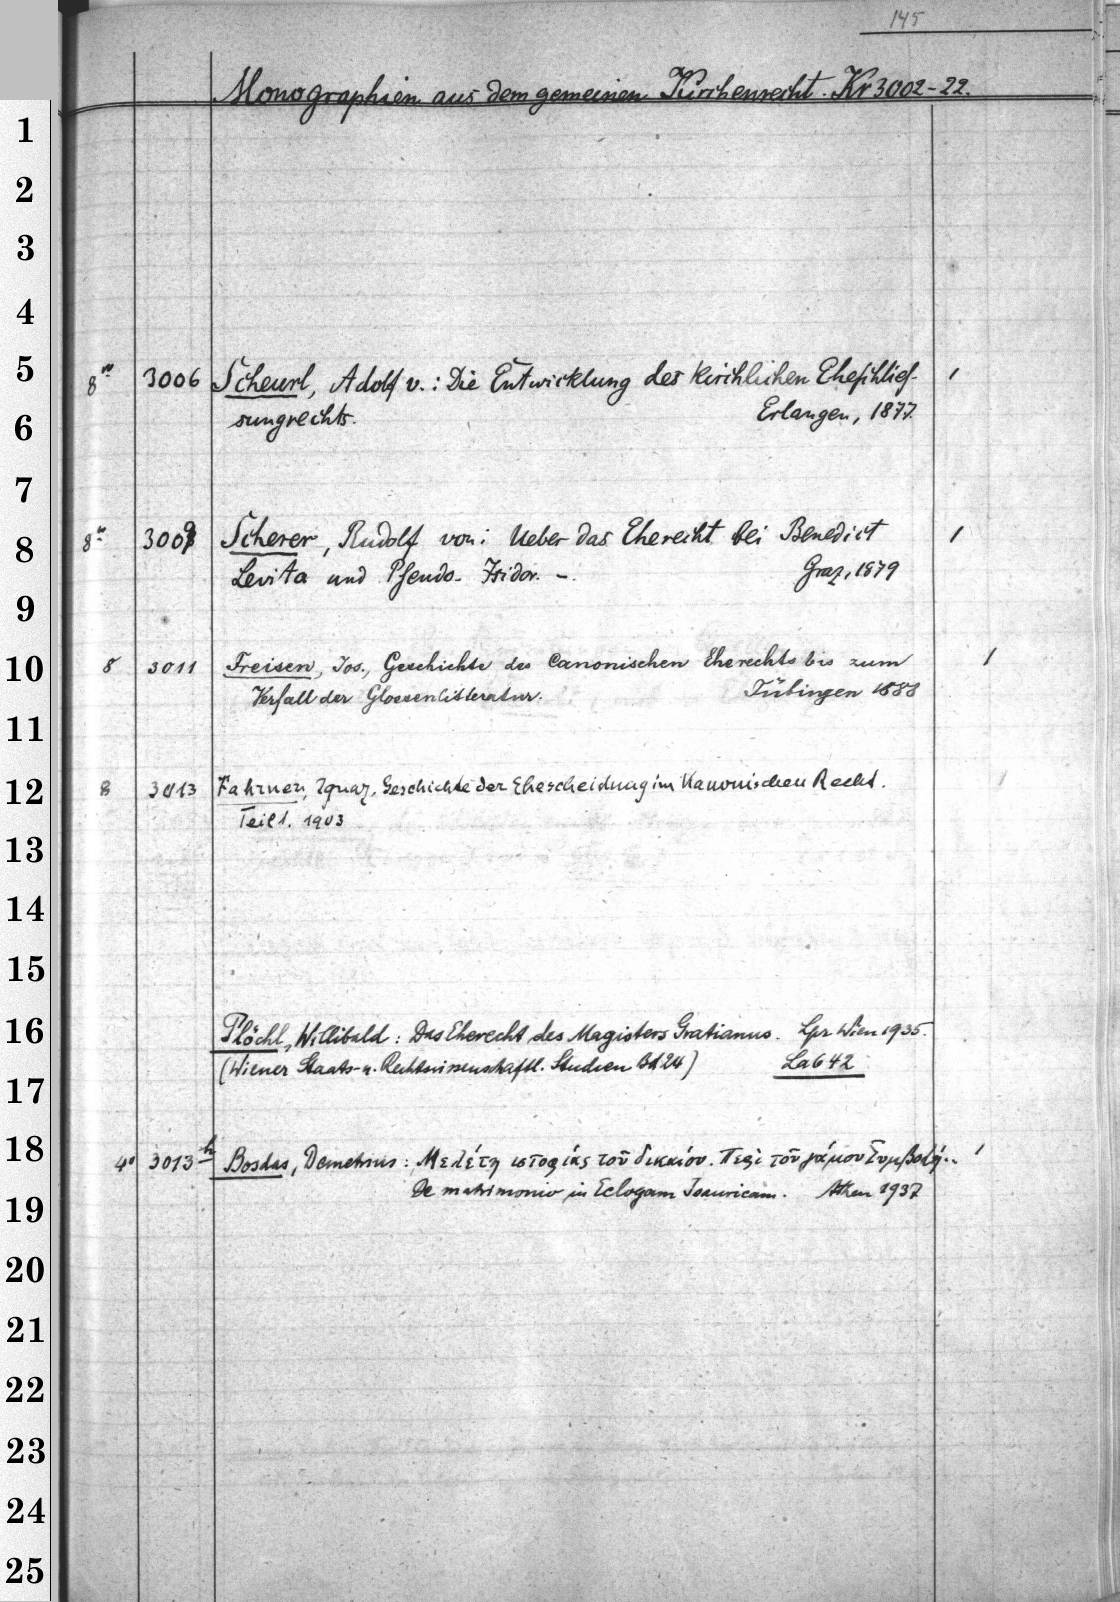 145
Monographien aus dem gemeinen Kirchenrecht. Kr 3002-22.
1
2
3
4
5
8° 3006 Scheurl, Adolf v.: Die Entwicklung des kirchlichen Eheschließ- 1
6
sungrechts. Erlangen, 1877.
7
8
8° 3009 Scherer, Rudolf von: Ueber das Eherecht bei Benedict 1
Levita und Pseudo-Isidor. –. Graz, 1879
9
10
8 3011 Freisen, Jos., Geschichte des Canonischen Eherechts bis zum 1
Verfall der Glossenlitteratur. Tübingen 1888
11
12
8 3013 Fahrner, Ignaz, Geschichte der Ehescheidung im Kanonischen Recht. 1
Teil 1. 1903
13
14
15
16
Plöchl, Willibald: Das Eherecht des Magisters Gratianus. Lpz Wien 1935.
(Wiener Staats- u. Rechtswissenschaftl. Studien Bd 24) La 642
17
18
4° 3013 h Bosdas, Demetrius: Μελέτη ιστορίας τοῦ δικαίου. Περὶ τοῦ γάμου Συμβολή.. 1
De matrimonio in Eclogam Isauricam. Athen 1937
19
20
21
22
23
24
25